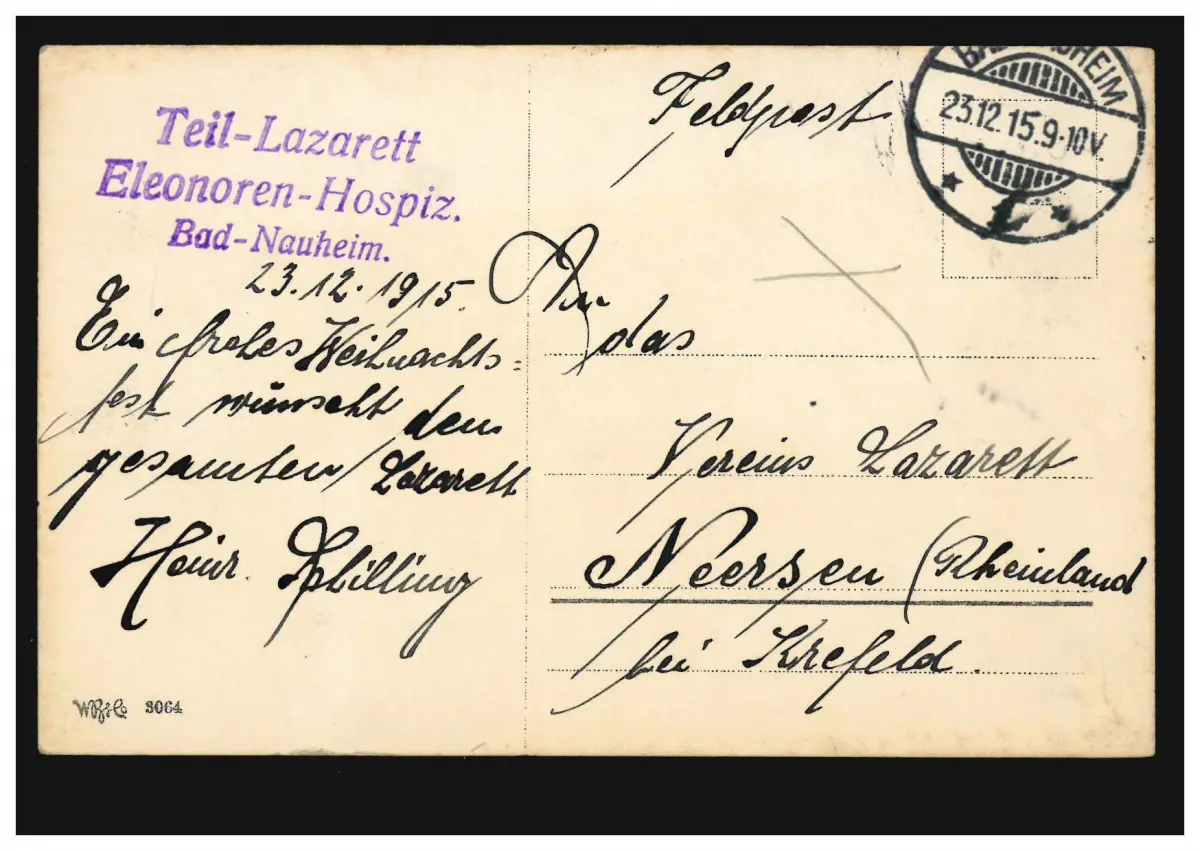 Teil-Lazarett
Eleonoren-Hospiz.
Bad-Nauheim.
23.12.1915.
Ein frohes Weihnachts=
fest wünscht dem
gesamten Lazarett
Heinr. Schilling
3064
Feldpost
BAD NAUHEIM
23.12.15.9-10V.
An
das
Vereins Lazarett
Neersen (Rheinland
bei Krefeld.